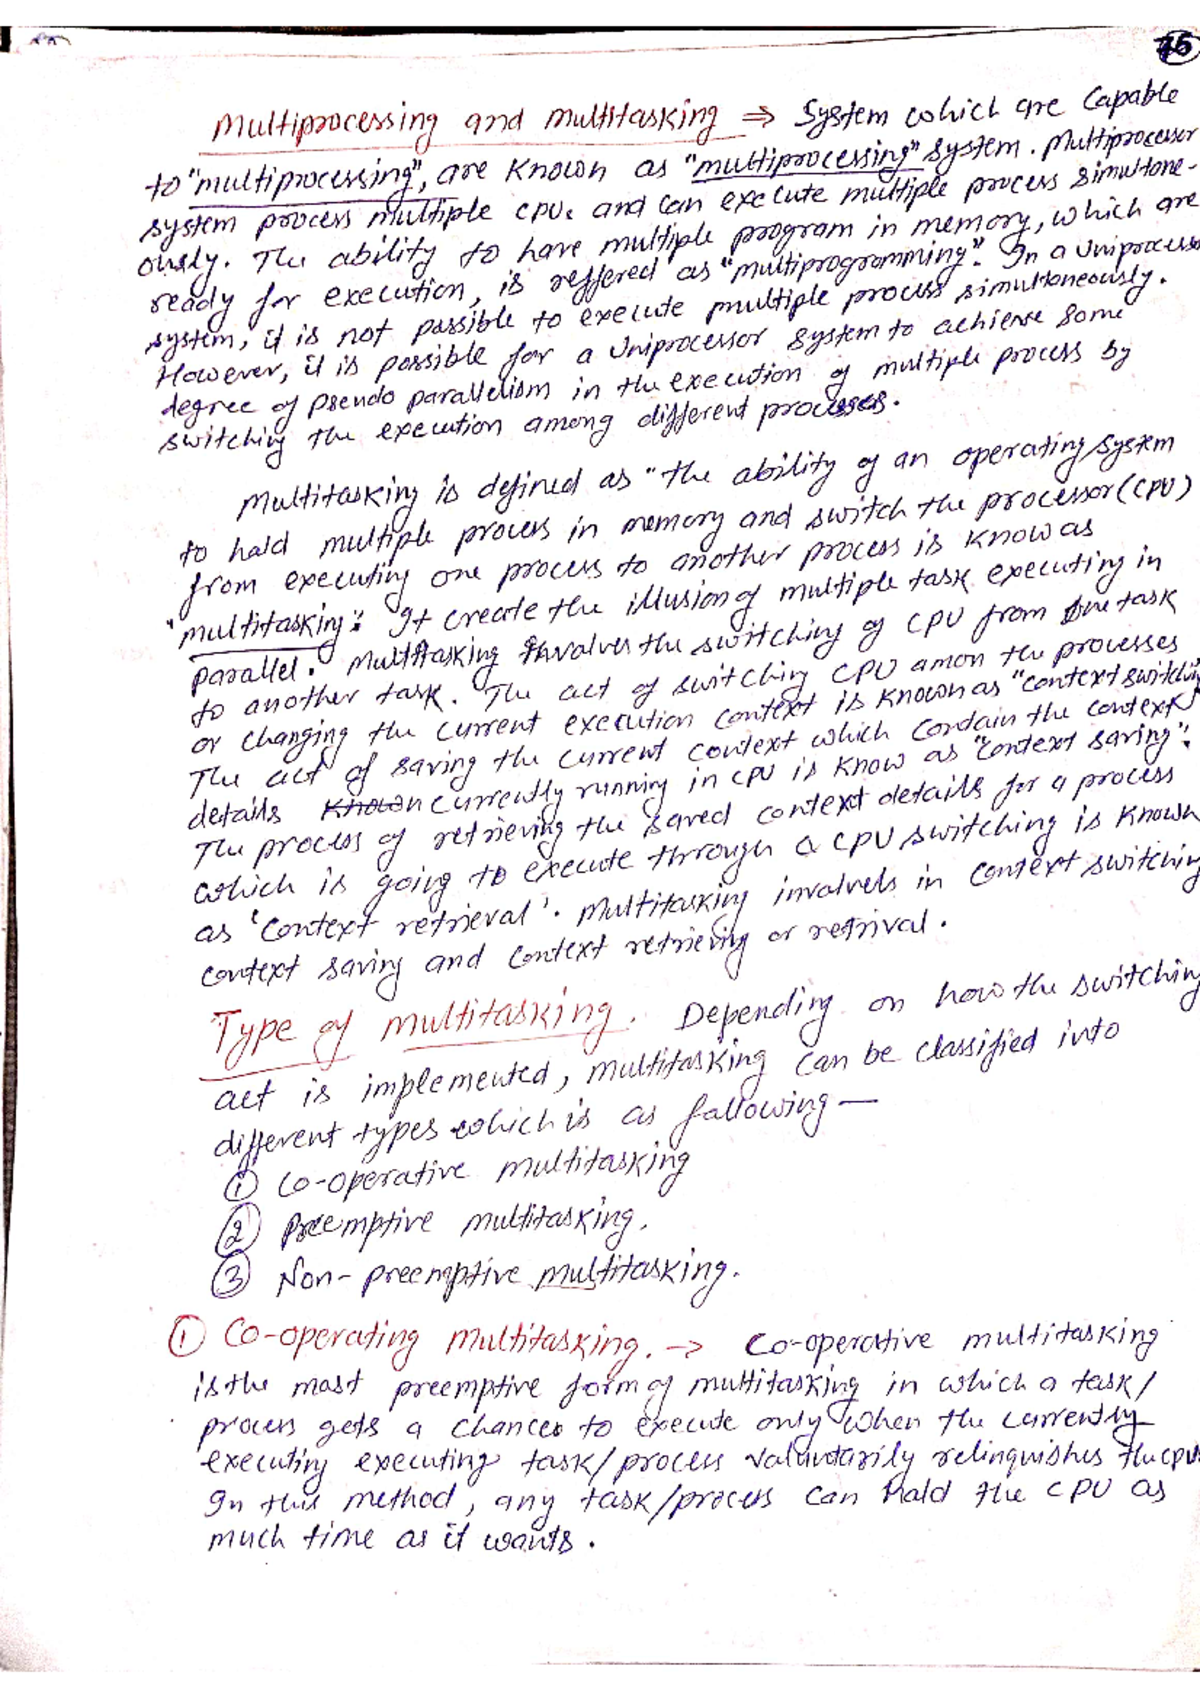 75
Multiprocessing and multitasking ⇒ System which are Capable
to "multiprocessing", are known as "multiprocessing" system. Multiprocessor
system process multiple CPUs and can execute multiple process simultone-
ously. The ability to have multiple program in memory, which are
ready for execution, is reffered as "multiprogramming". In a Uniprocessor
system, it is not possible to execute multiple process simultaneously.
However, it is possible for a Uniprocessor system to achieve some
degree of psendo parallelism in the execution of multiple process by
switching the execution among different processes.
Multitasking is defined as "the ability of an operating system
to hald multiple process in memory and switch the processor (CPU)
from executing one process to another process is know as
"multitasking". It create the illusion of multiple task executing in
parallel. Multitasking involves the switching of CPU from one task
to another task. The act of switching CPU amon the processes
or changing the current execution context is known as "context switching
The act of saving the current context which contain the context
details currently running in CPU is know as "context saving".
The process of retrieving the saved context details for a process
which is going to execute through a CPU switching is known
as 'context retrieval'. Multitasking involvels in context switching
context saving and context retrieving or retrival.
Type of multitasking. Depending on how the switching
act is implemented, multitasking can be classified into
different types which is as fallowing —
① Co-operative multitasking
② Preemptive multitasking.
③ Non-preemptive multitasking.
① Co-operating multitasking. → Co-operative multitasking
is the most preemptive form of multitasking in which a task/
process gets a chances to execute only when the currently
executing executing task/process valuntarily relinquishes the cpu
In this method, any task/process can hald the CPU as
much time as it wants.